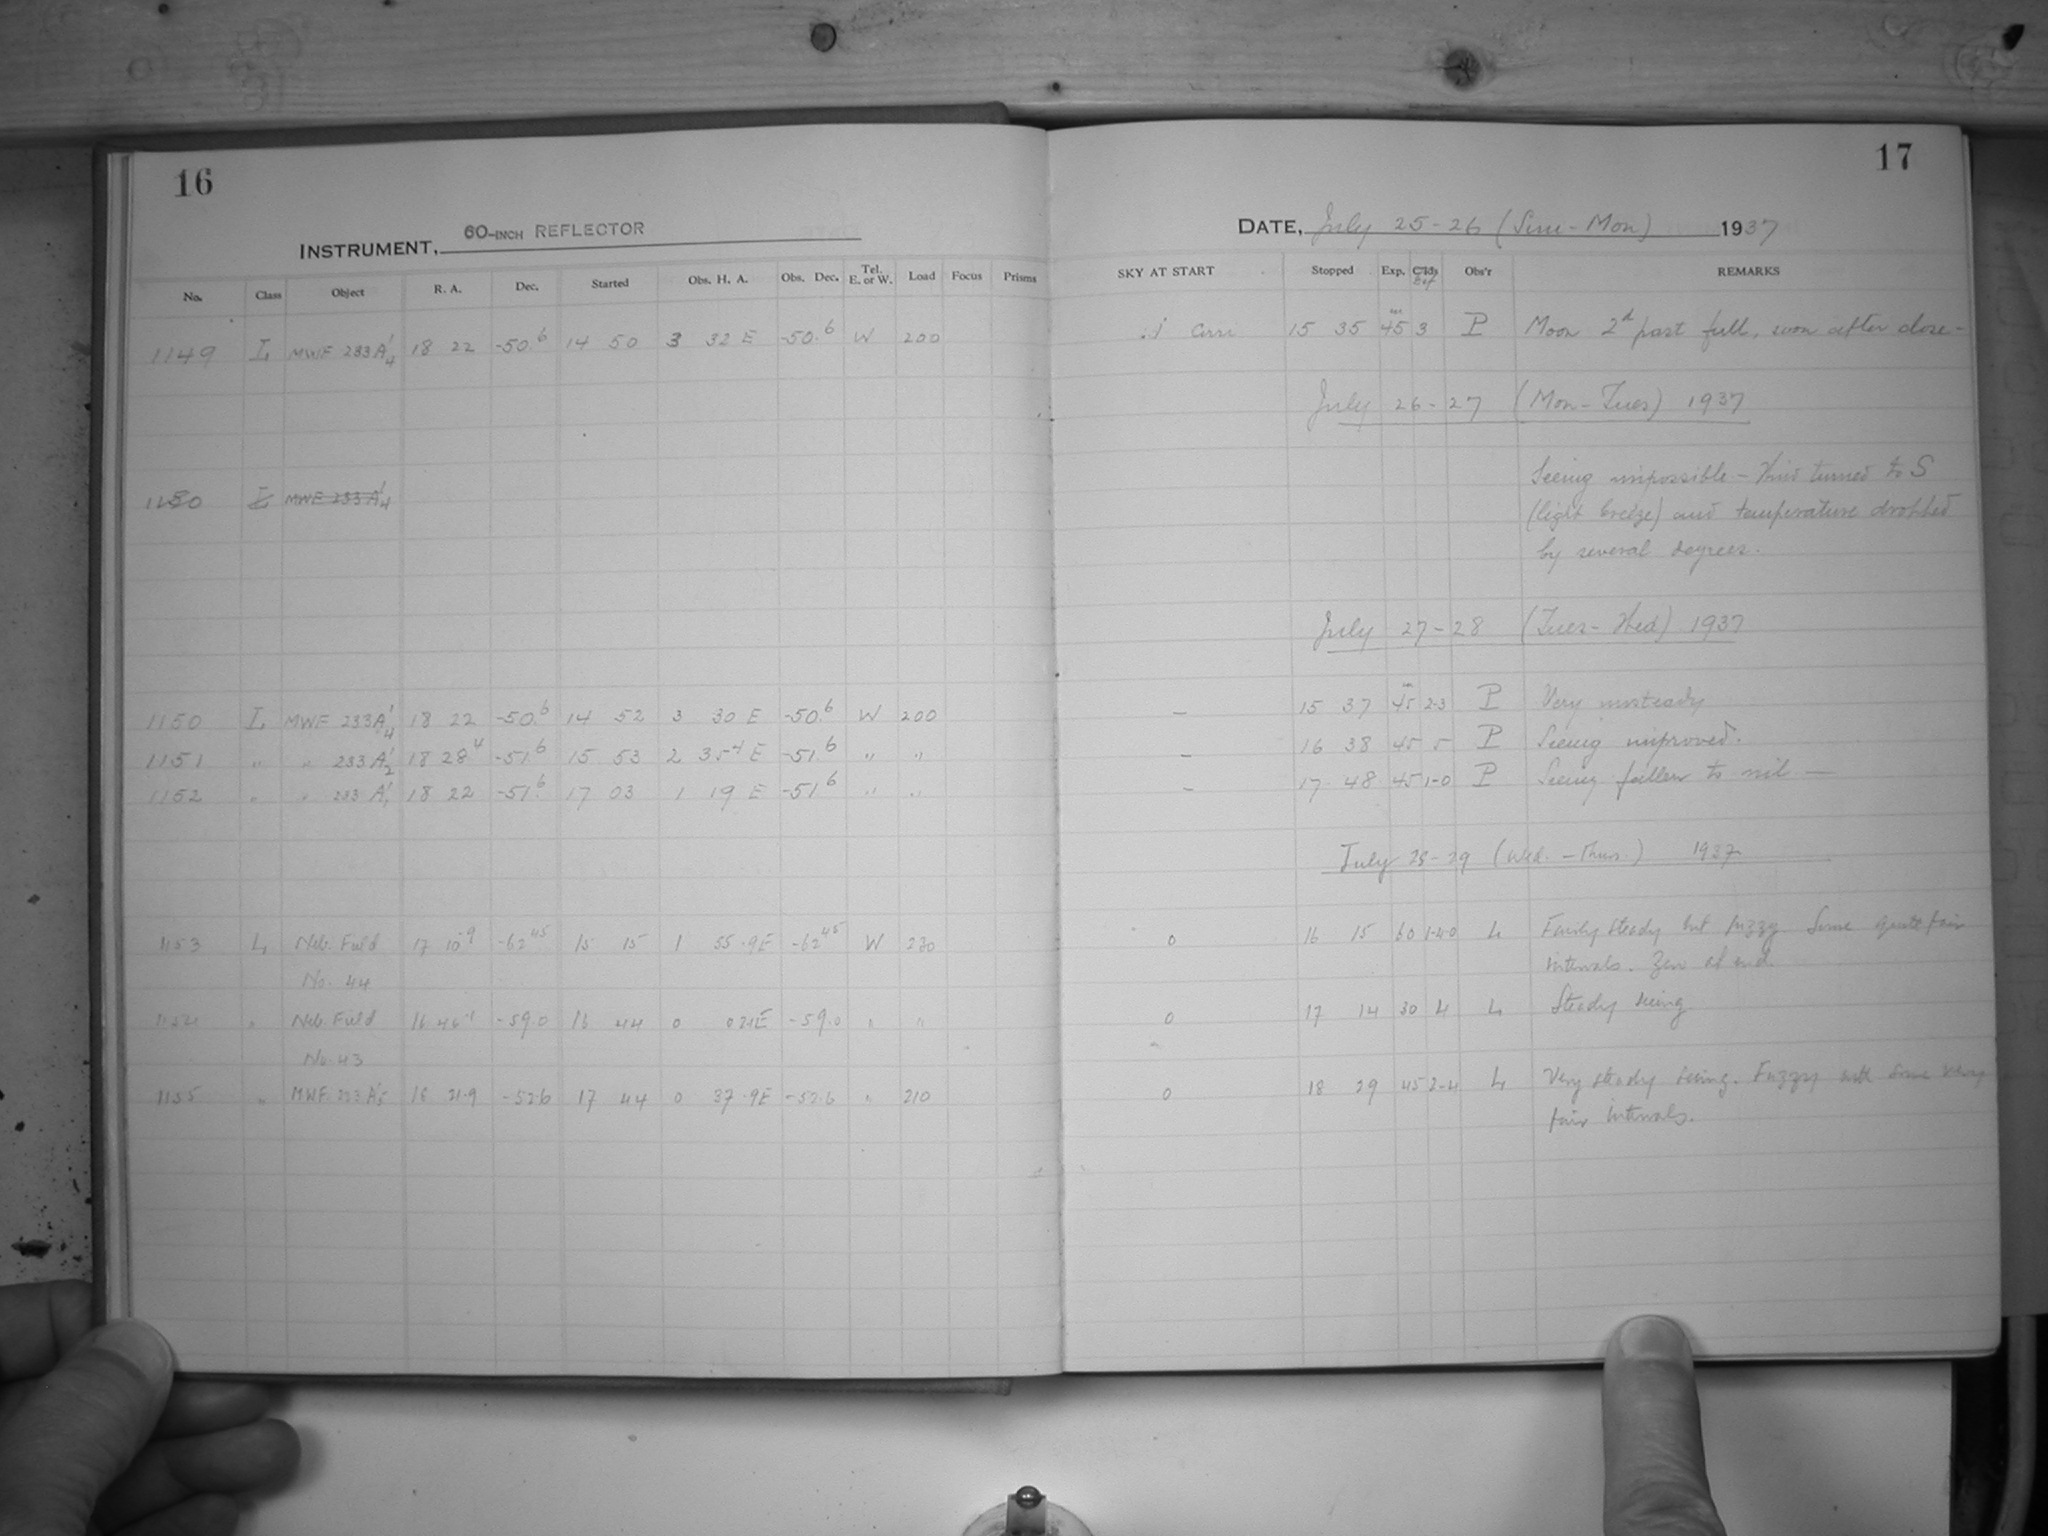 16
INSTRUMENT, 60-INCH REFLECTOR
No. Class Object R. A. Dec. Started Obs. H. A. Obs. Dec. Tel. E. or W. Load Focus Prisms
1149 L MWF 233 A¹₄ 18 22 -50.6 14 50 3 32 E -50.6 W 200
1150 L MWF 233 A¹₄
1150 L MWF 233 A¹₄ 18 22 -50.6 14 52 3 30 E -50.6 W 200
1151 " " 233 A¹₂ 18 28⁴ -51.6 15 53 2 35⁴ E -51.6 " "
1152 " " 233 A¹₁ 18 22 -51.6 17 03 1 19 E -51.6 " "
1153 L Neb. Field 17 10·9 -62 45 15 15 1 55·9E -62 45 W 230
No. 44
1154 " Neb. Field 16 46·1 -59.0 16 44 0 E -59.0 " "
No. 43
1155 " MWF 233 A'5 21·9 -52.6 17 44 0 37·9E -52.6 " 210
17
DATE, July 25-26 (Sun-Mon) 1937
SKY AT START Stopped Exp. Obs'r REMARKS
Cirri 15 35 45 3 P Moon 2d past full, soon after close-
July 26-27 (Mon-Tues) 1937
Seeing impossible - Wind turned to S
(light breeze) and temperature dropped
by several degrees.
July 27-28 (Tues-Wed) 1937
- 15 37 45 2-3 P Very unsteady
- 16 38 45 5 P Seeing improved.
- 17 48 45 1-0 P Seeing fallen to nil —
July 28-29 (Wed. - Thurs.) 1937
0 16 15 60 1-4-0 L Fairly steady but fuzzy Some quite fair
intervals. Zero at end.
0 17 14 30 4 L Steady seeing
0 18 29 45 2-4 L Very steady seeing. Fuzzy with some very
fair intervals.